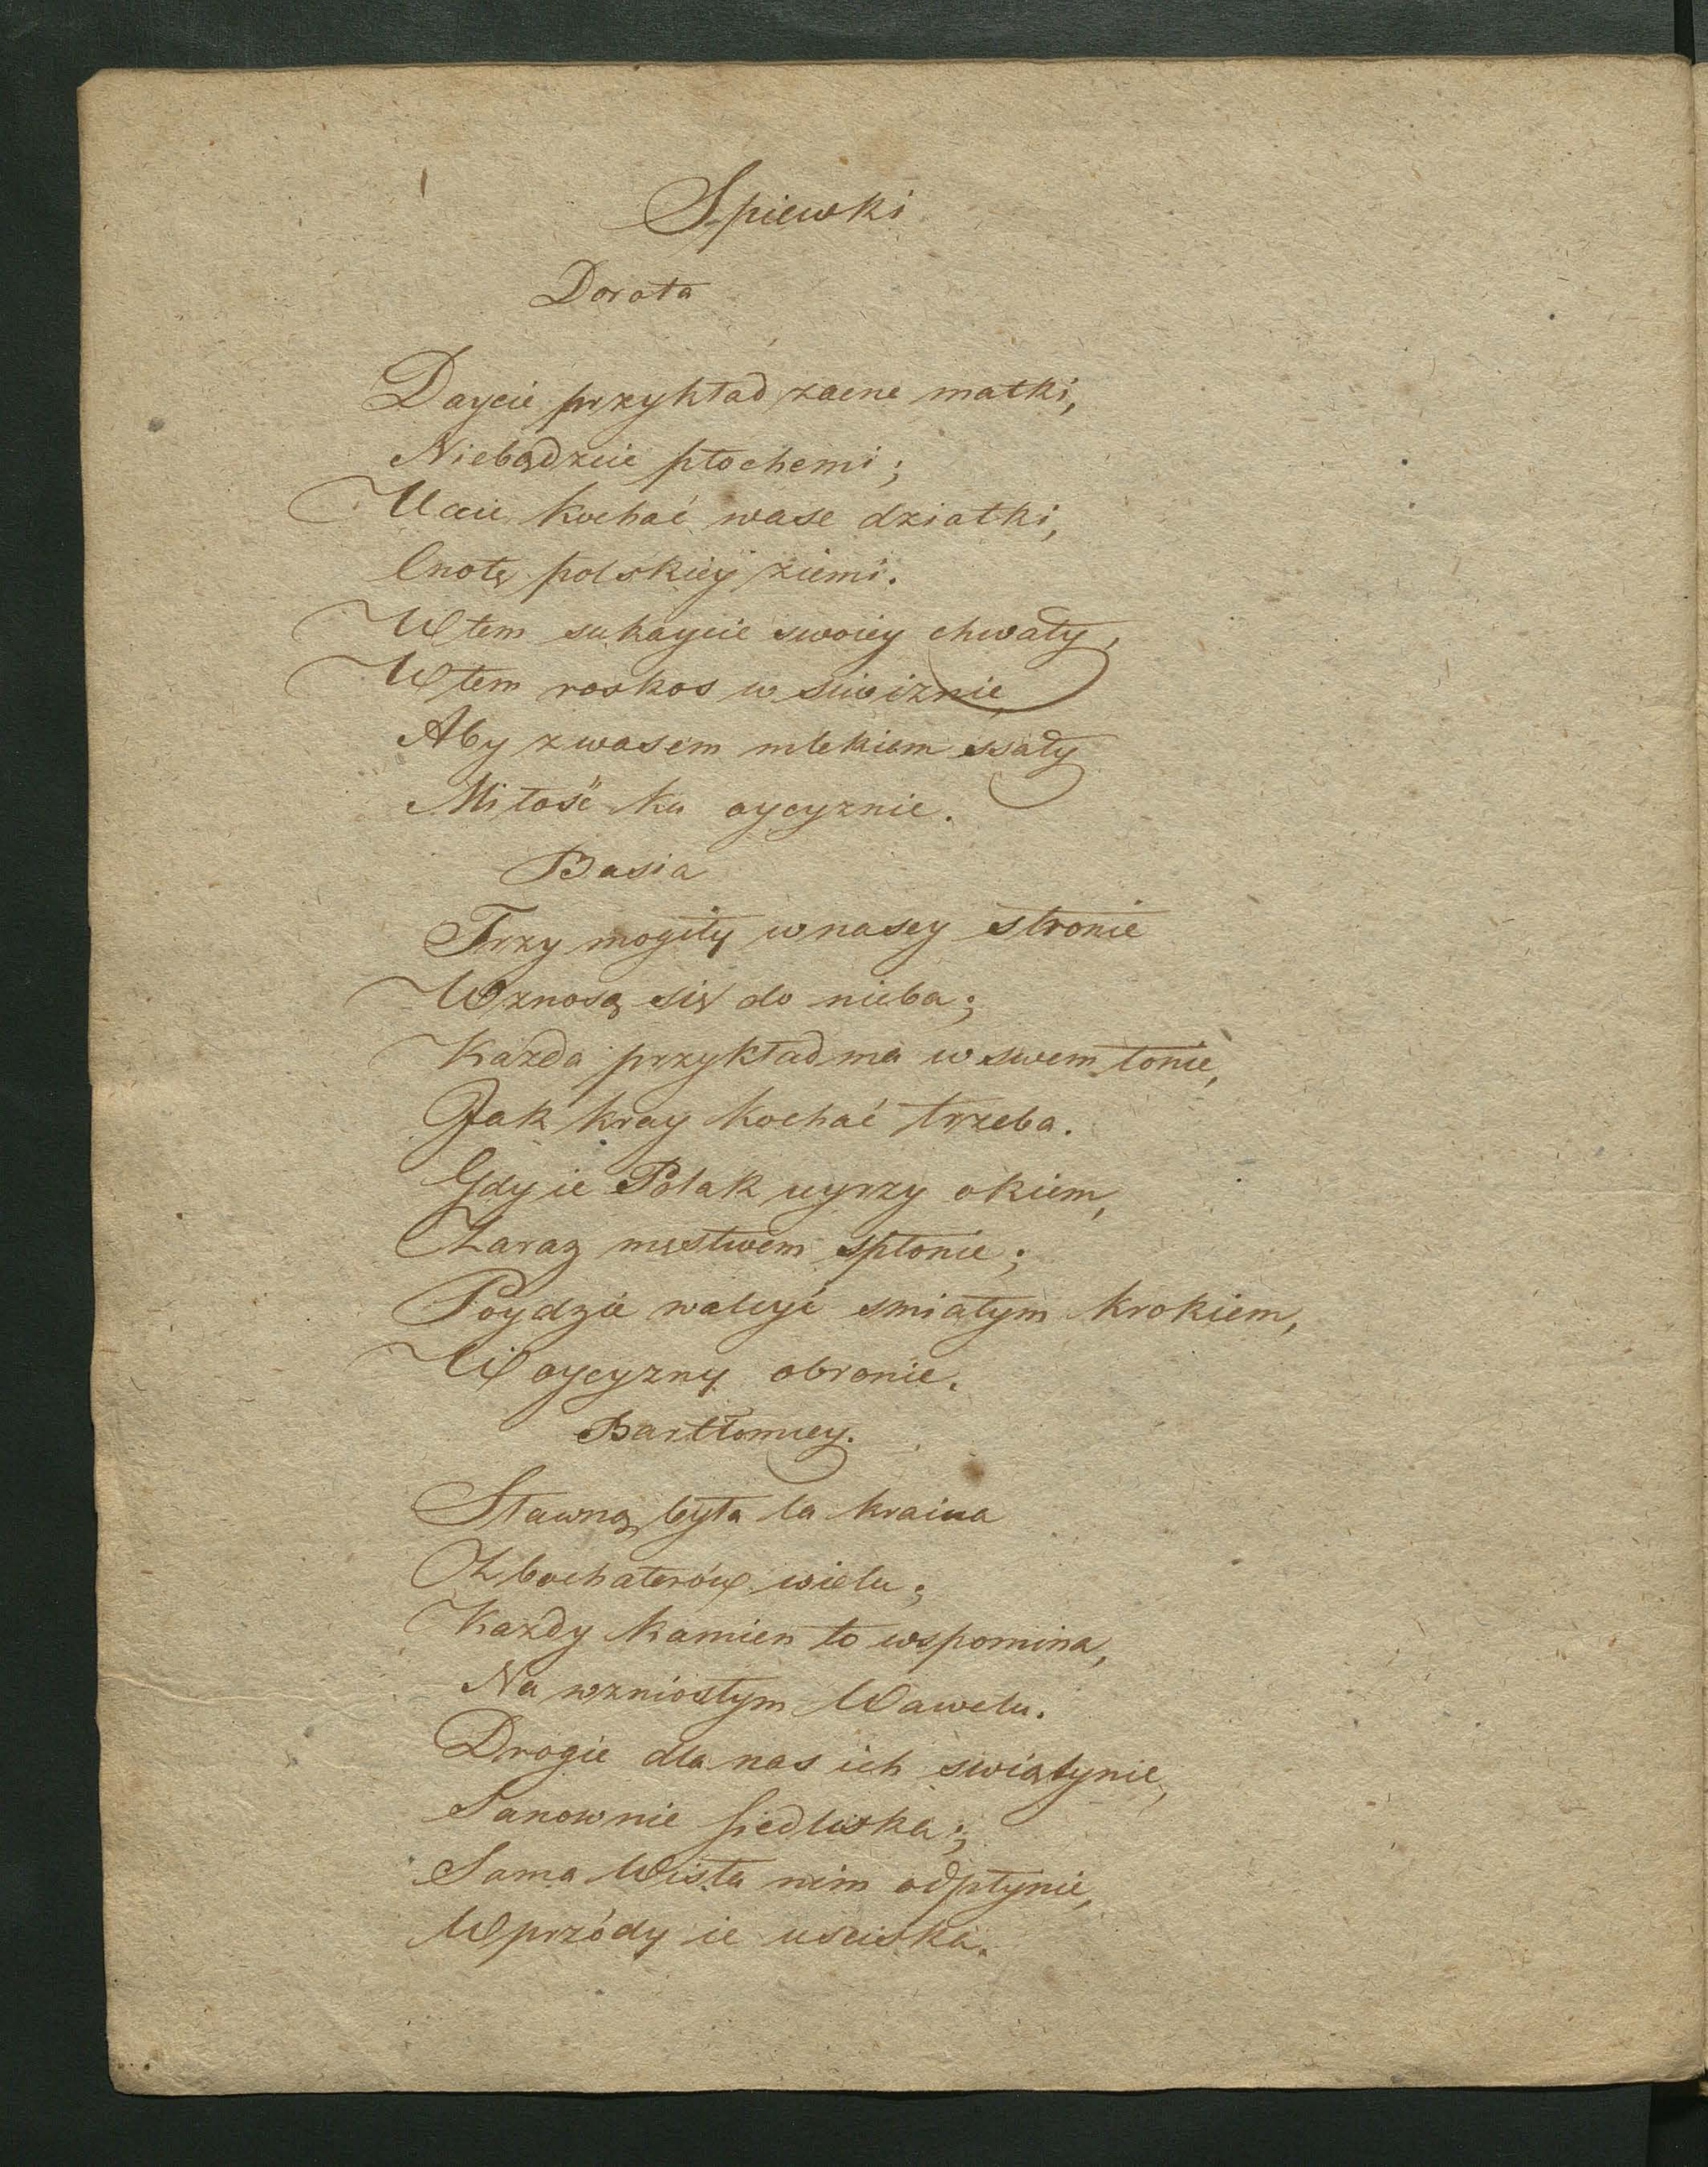 Spiewki
Dorota
Daycie przykład zacne matki,
Niebądzcie płochemi;
Uccie kochać wase dziatki,
Cnotę polskiey ziemi.
W tem sukaycie swoiey chwały,
W tem roskos w siwiznie,
Aby z wasem mlekiem ssały
Miłość ku oycyznie.
Basia
Trzy mogiły w nasey stronie
Wznosą się do nieba;
Kazda przykład ma w swem łonie,
Jak kray kochać trzeba.
Gdy ie Polak uyrzy okiem,
Zaraz męstwem spłonie;
Poydzie walcyć smiałym krokiem,
W oycyzny obronie.
Bartłomiey.
Sławną była ta kraina
Z bochaterów wielu;
Kazdy kamien to wspomina,
Na wzniosłym Wawelu.
Drogie dla nas ich swiątynie,
Sanownie siedliska;
Sama Wisła nim odpłynie,
Wprzódy ie usciska.